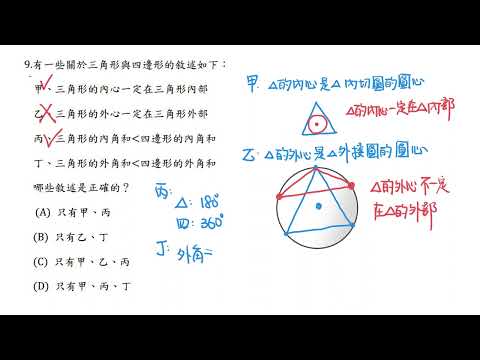 9.有一些關於三角形與四邊形的敘述如下：
甲、三角形的內心一定在三角形內部
乙、三角形的外心一定在三角形外部
丙、三角形的內角和<四邊形的內角和
丁、三角形的外角和<四邊形的外角和
哪些敘述是正確的？
(A) 只有甲、丙
(B) 只有乙、丁
(C) 只有甲、乙、丙
(D) 只有甲、丙、丁
丙:
△: 180°
四: 360°
丁: 外角=
甲: △的內心是△內切圓的圓心
△的內心一定在△內部
乙: △的外心是△外接圓的圓心
△的外心不一定
在△的外部